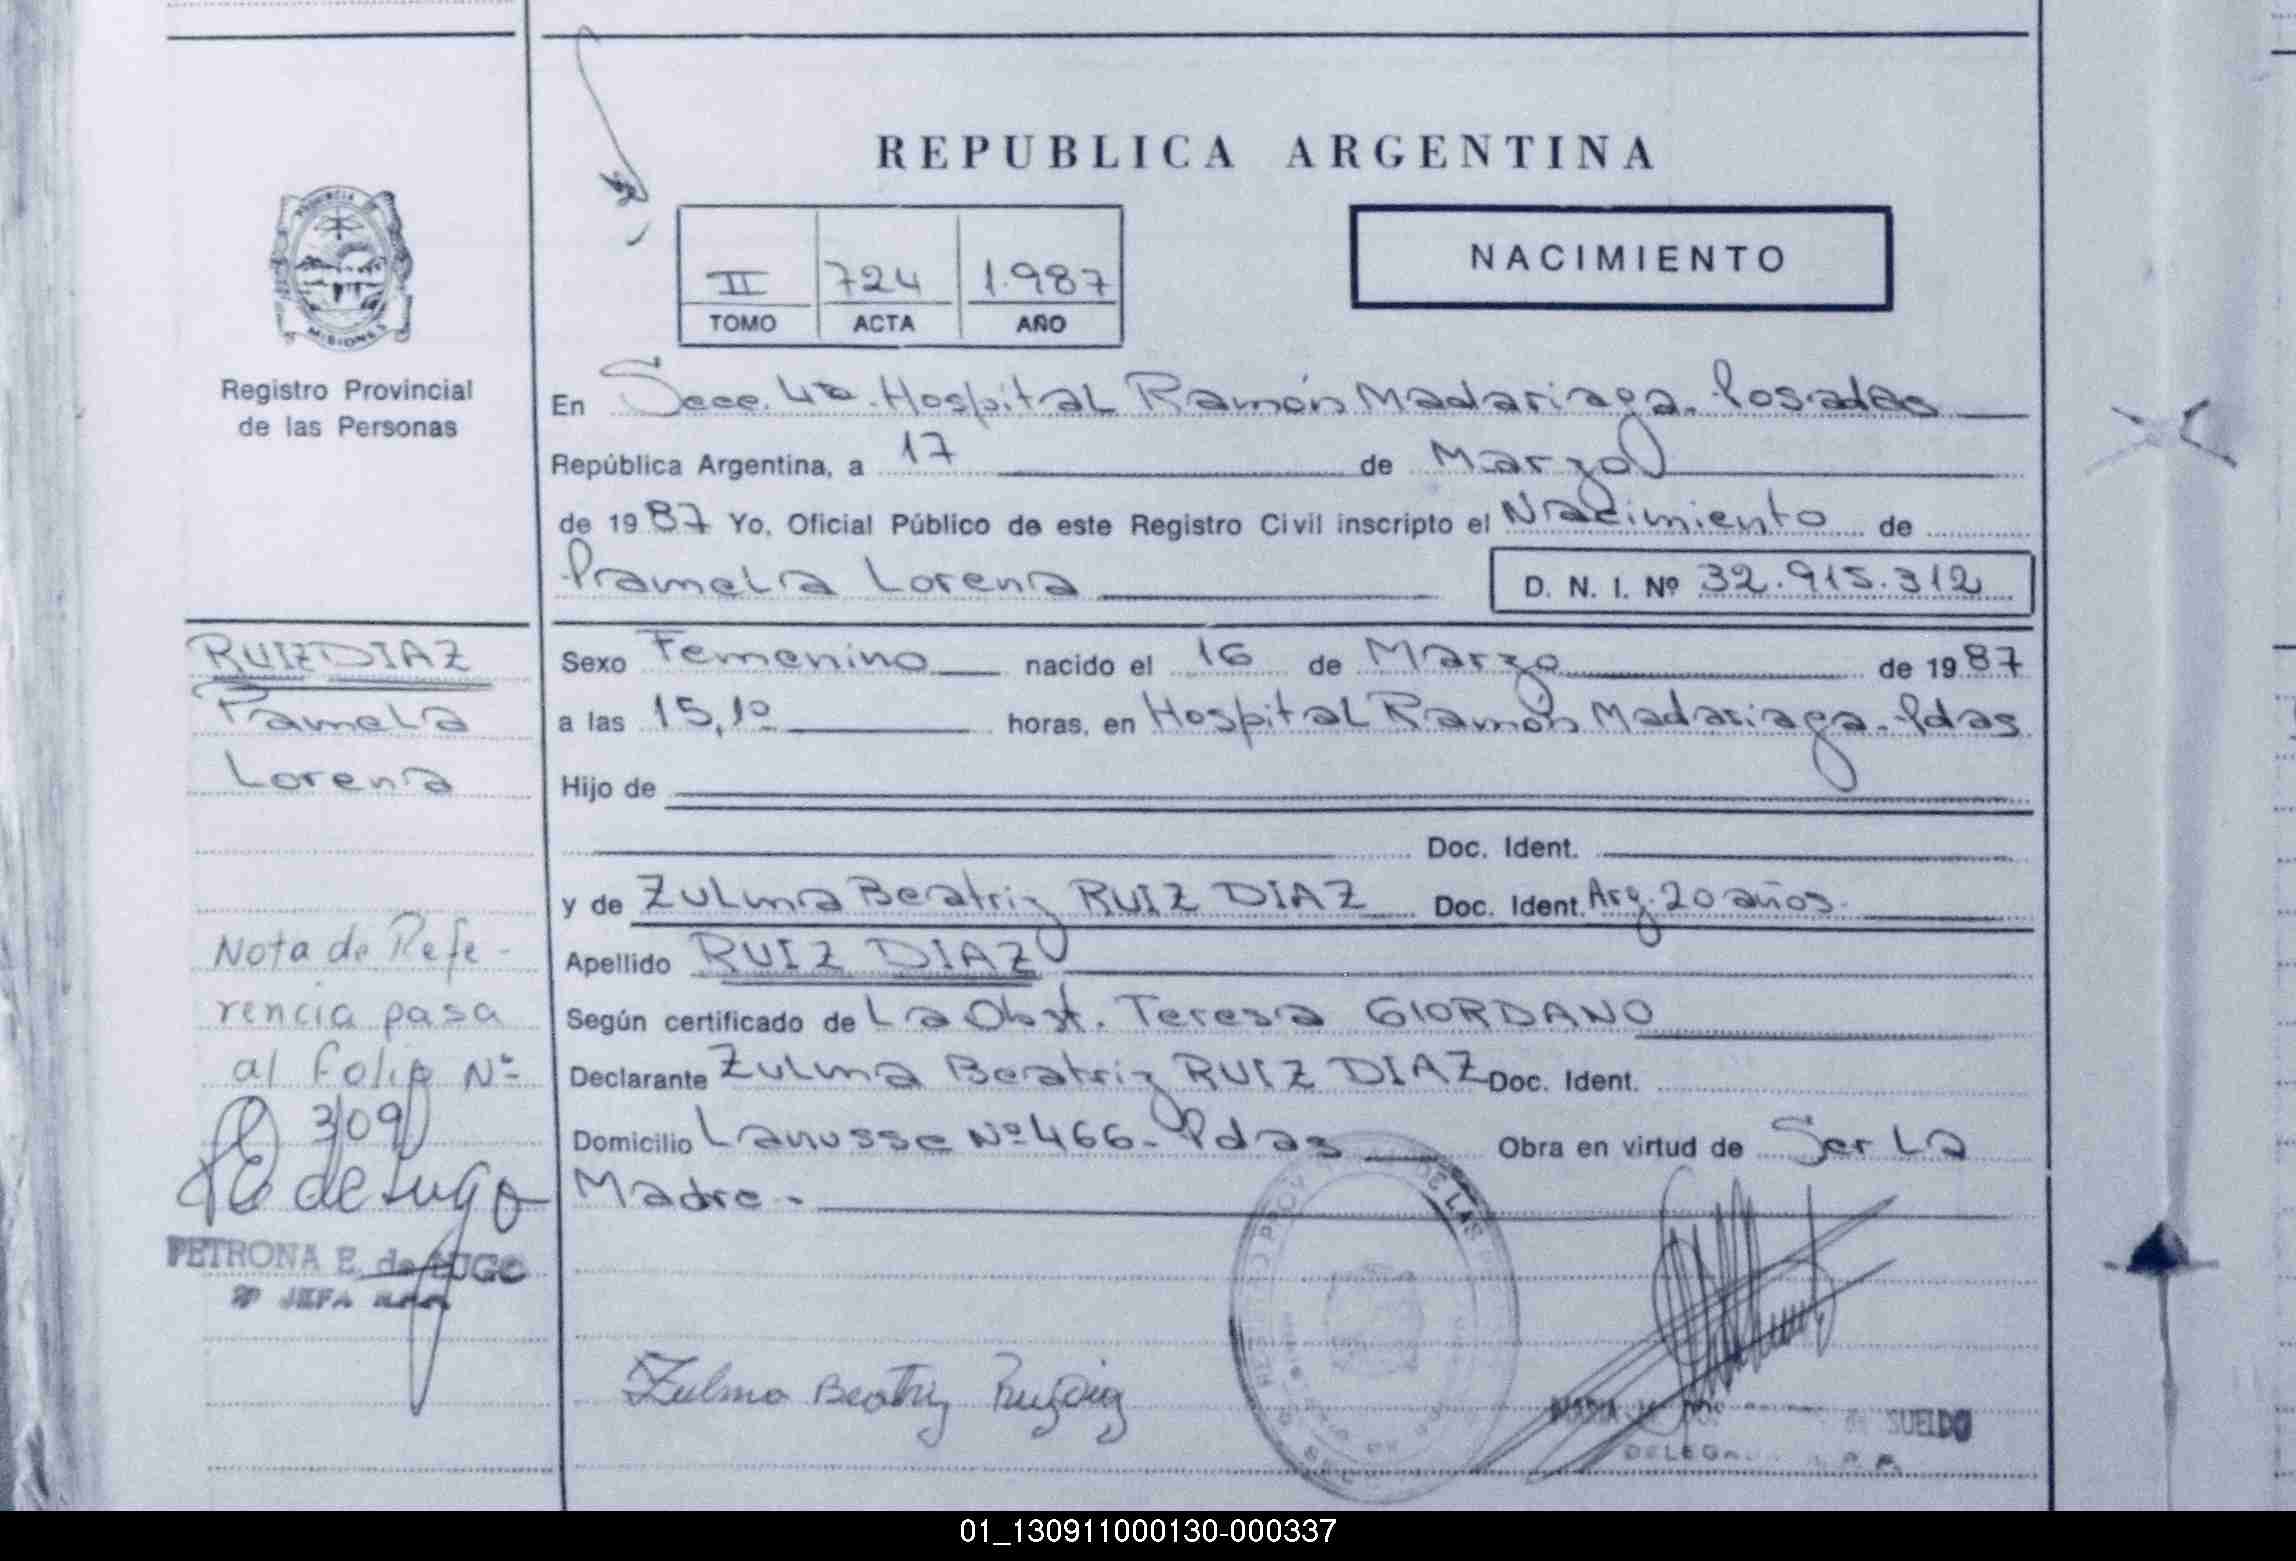 REPUBLICA ARGENTINA
PROVINCIA DE
MISIONES
Registro Provincial
de las Personas
II 724 1.987
TOMO ACTA AÑO
NACIMIENTO
En Secc. 4ta. Hospital Ramón Madariaga. Posadas
República Argentina, a 17 de Marzo
de 1987 Yo, Oficial Público de este Registro Civil inscripto el Nacimiento de
Pamela Lorena D. N. I. Nº 32.915.312
RUIZ DIAZ
Pamela
Lorena
Sexo Femenino nacido el 16 de Marzo de 1987
a las 15,10 horas, en Hospital Ramón Madariaga. Pdas
Hijo de
Doc. Ident.
y de Zulma Beatriz RUIZ DIAZ Doc. Ident. Arg. 20 años.
Apellido RUIZ DIAZ
Según certificado de La Obst. Teresa GIORDANO
Declarante Zulma Beatriz RUIZ DIAZ Doc. Ident.
Domicilio Lanusse Nº 466- Pdas Obra en virtud de Ser La
Madre-
Nota de Refe-
rencia pasa
al folio Nº
309
PE de Lugo
PETRONA E. de LUGO
JEFA
DE LAS
Zulma Beatriz Ruiz Diaz
MARIA SUELDO
01_130911000130-000337